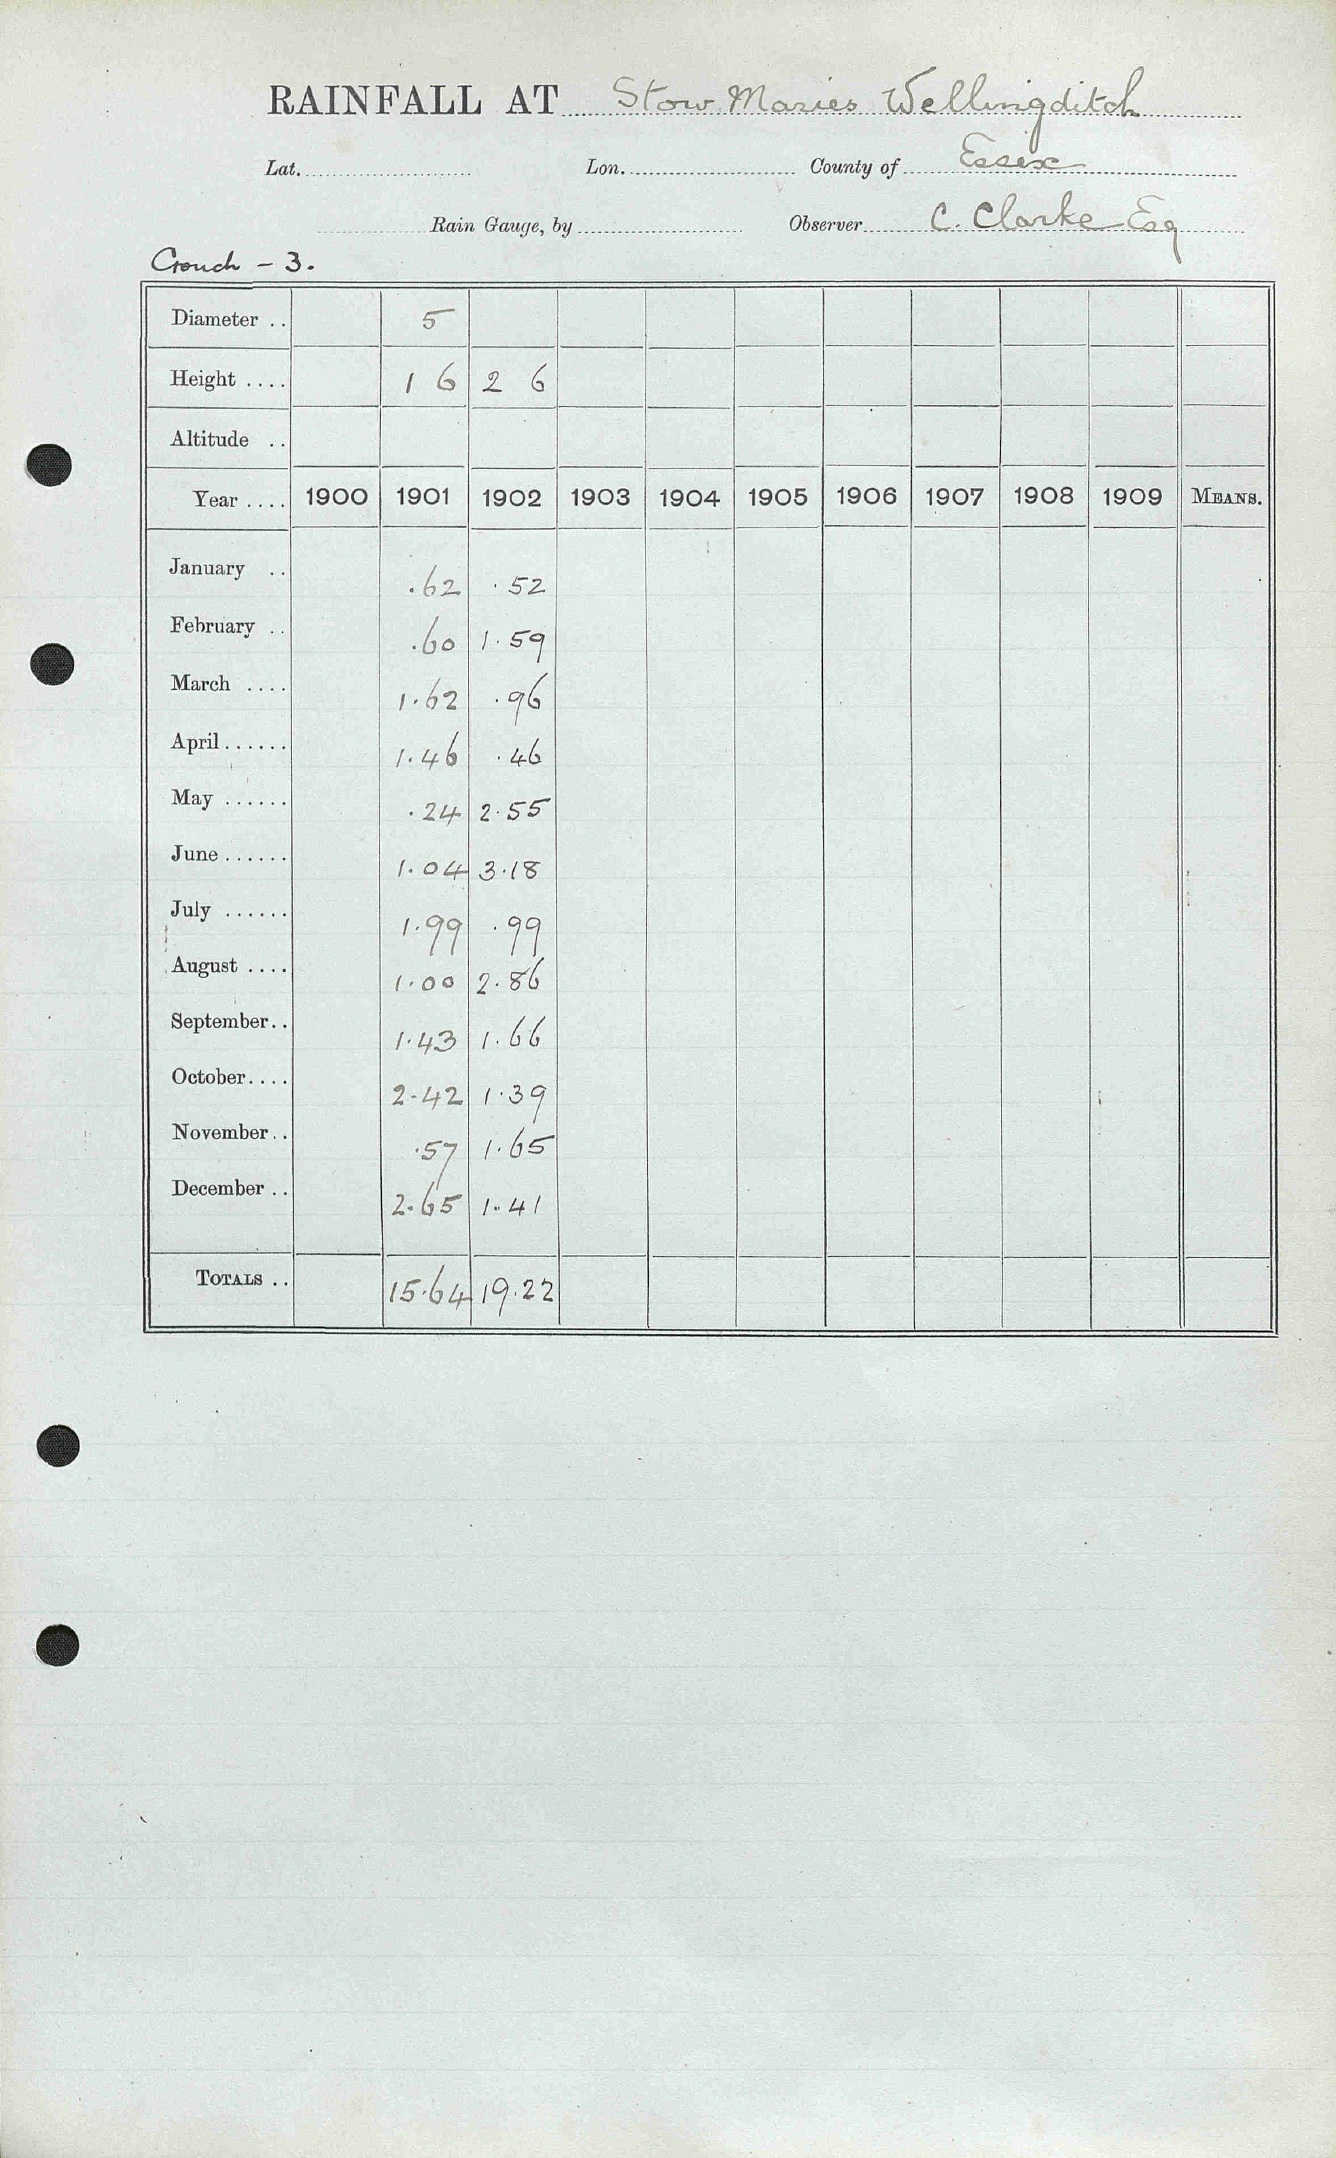 RAINFALL AT Stow Maries Wellingditch
Lat. Lon. County of Essex
Rain Gauge, by Observer C. Clarke Esq
Crouch - 3.
Diameter .. 5
Height .... 1 6 2 6
Altitude ..
Year .... 1900 1901 1902 1903 1904 1905 1906 1907 1908 1909 MEANS.
January .. .62 .52
February .. .60 1.59
March .... 1.62 .96
April ...... 1.46 .46
May ...... .24 2.55
June ...... 1.04 3.18
July ...... 1.99 .99
August .... 1.00 2.86
September.. 1.43 1.66
October.... 2.42 1.39
November.. .57 1.65
December .. 2.65 1.41
TOTALS .. 15.64 19.22